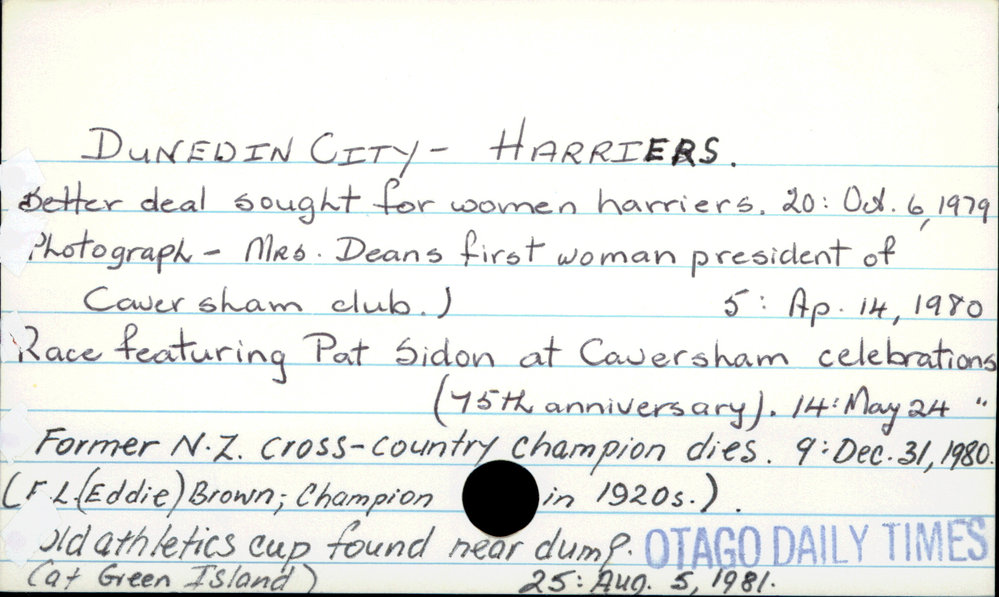 DUNEDIN CITY - HARRIERS.
Better deal sought for women harriers. 20: Oct. 6, 1979
Photograph - Mrs. Deans first woman president of
Caversham club.) 5: Ap. 14, 1980
Race featuring Pat Sidon at Caversham celebrations
(75th anniversary). 14: May 24 "
Former N.Z. cross-country champion dies. 9: Dec. 31, 1980.
(F.L.(Eddie) Brown; Champion in 1920s.).
Old athletics cup found near dump. OTAGO DAILY TIMES
(at Green Island) 25: Aug. 5, 1981.